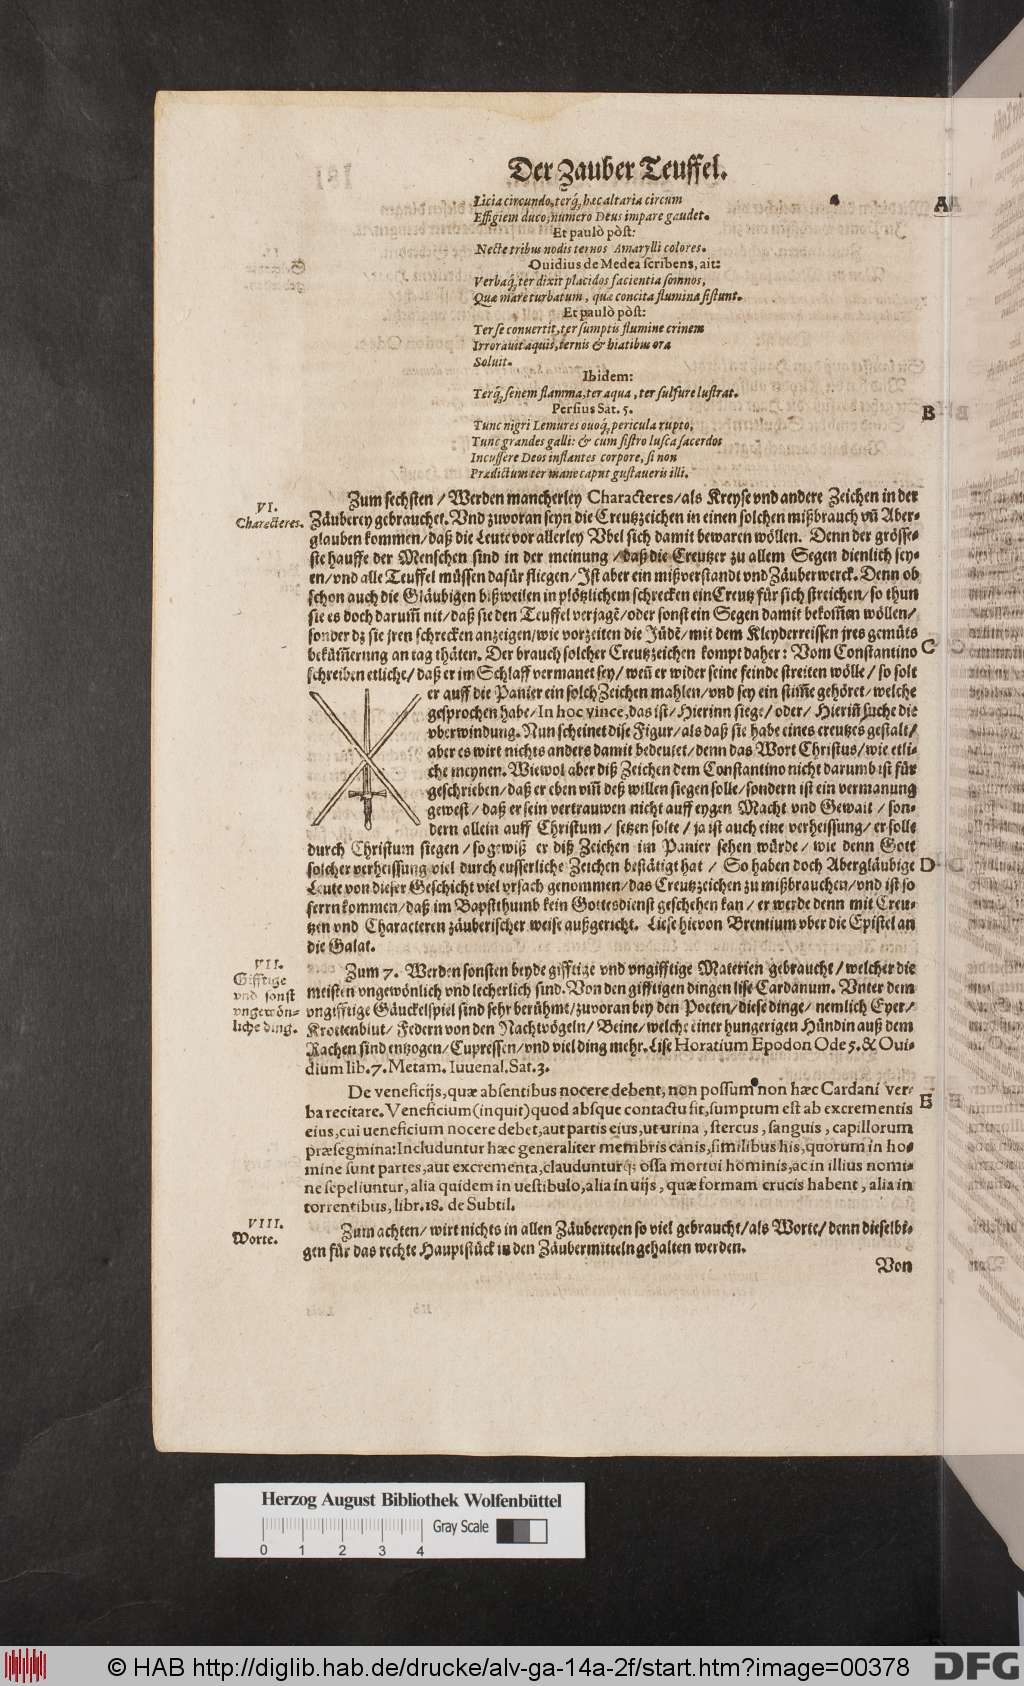 Der Zauber Teuffel.
Licia circundo, terq́; hæc altaria circum
Effigiem duco, numero Deus impare gaudet.
Et paulò pòst:
Necte tribus nodis ternos Amarylli colores.
Ouidius de Medea scribens, ait:
Verbaq́; ter dixit placidos facientia somnos,
Quæ mare turbatum, quæ concita flumina sistunt.
Et paulò pòst:
Ter se conuertit, ter sumptis flumine crinem
Irrorauit aquis, ternis & hiatibus ora
Soluit.
Ibidem:
Terq́; senem flamma, ter aqua, ter sulfure lustrat.
Persius Sat. 5.
Tunc nigri Lemures ouoq́; pericula rupto,
Tunc grandes galli: & cum sistro lusca sacerdos
Incussere Deos inflantes corpore, si non
Prædictum ter mane caput gustaueris illi.
A
B
VI.
Characteres.
Zum sechsten / Werden mancherley Characteres / als Kreyse vnd andere Zeichen in der
Zäuberey gebrauchet. Vnd zuvoran seyn die Creutzzeichen in einen solchen mißbrauch vñ Aber-
glauben kommen / daß die Leute vor allerley Vbel sich damit bewaren wöllen. Denn der grösse-
ste hauffe der Menschen sind in der meinung / daß die Creutzer zu allem Segen dienlich sey-
en / vnd alle Teuffel müssen dafür fliegen / Ist aber ein mißverstandt vnd Zäuberwerck. Denn ob
schon auch die Gläubigen bißweilen in plötzlichem schrecken ein Creutz für sich streichen / so thun
sie es doch darum̃ nit / daß sie den Teuffel verjagẽ / oder sonst ein Segen damit bekom̃en wöllen /
sonder dz sie jren schrecken anzeigen / wie vorzeiten die Jüdẽ / mit dem Kleyderreissen jres gemüts
beküm̃erung an tag thäten. Der brauch solcher Creutzzeichen kompt daher: Vom Constantino
schreiben etliche / daß er im Schlaff vermanet sey / weñ er wider seine feinde streiten wölle / so solt
er auff die Panier ein solch Zeichen mahlen / vnd sey ein stim̃e gehöret / welche
gesprochen habe / In hoc vince, das ist / Hierinn siege / oder / Hieriñ suche die
vberwindung. Nun scheinet dise Figur / als daß sie habe eines creutzes gestalt /
aber es wirt nichts anders damit bedeutet / denn das Wort Christus / wie etli-
che meynen. Wiewol aber diß Zeichen dem Constantino nicht darumb ist für
geschrieben / daß er eben vm̃ deß willen siegen solle / sondern ist ein vermanung
gewest / daß er sein vertrauwen nicht auff eygen Macht vnd Gewalt / son-
dern allein auff Christum / setzen solte / ja ist auch eine verheissung / er solle
durch Christum siegen / so gewiß er diß Zeichen im Panier sehen würde / wie denn Gott
solcher verheissung viel durch eusserliche Zeichen bestätigt hat / So haben doch Abergläubige
Leute von dieser Geschicht viel vrsach genommen / das Creutzzeichen zu mißbrauchen / vnd ist so
ferrn kommen / daß im Bapstthumb kein Gottesdienst geschehen kan / er werde denn mit Creu-
tzen vnd Characteren zäuberischer weise außgericht. Liese hievon Brentium vber die Epistel an
die Galat.
C
D
VII.
Gifftige
vnd sonst
vngewön-
liche ding.
Zum 7. Werden sonsten beyde gifftige vnd vngifftige Materien gebraucht / welcher die
meisten vngewönlich vnd lecherlich sind. Von den gifftigen dingen lise Cardanum. Vnter dem
vngifftige Gäuckelspiel sind sehr berühmt / zuvoran bey den Poeten / diese dinge / nemlich Eyer /
Krottenblut / Federn von den Nachtvögeln / Beine / welche einer hungerigen Hündin auß dem
Rachen sind entzogen / Cupressen / vnd viel ding mehr. Lise Horatium Epodon Ode 5. & Oui-
dium lib. 7. Metam. Iuuenal. Sat. 3.
De veneficijs, quæ absentibus nocere debent, non possum non hæc Cardani ver-
ba recitare. Veneficium (inquit) quod absque contactu fit, sumptum est ab excrementis
eius, cui ueneficium nocere debet, aut partis eius, ut urina, stercus, sanguis, capillorum
præsegmina: Includuntur hæc generaliter membris canis, similibus his, quorum in ho-
mine sunt partes, aut excrementa, claudunturq́; ossa mortui hominis, ac in illius nomi-
ne sepeliuntur, alia quidem in uestibulo, alia in uijs, quæ formam crucis habent, alia in
torrentibus, libr. 18. de Subtil.
E
VIII.
Worte.
Zum achten / wirt nichts in allen Zäubereyen so viel gebraucht / als Worte / denn dieselbi-
gen für das rechte Hauptstück in den Zäubermitteln gehalten werden.
Von
Herzog August Bibliothek Wolfenbüttel
Gray Scale
0 1 2 3 4
© HAB http://diglib.hab.de/drucke/alv-ga-14a-2f/start.htm?image=00378
DFG